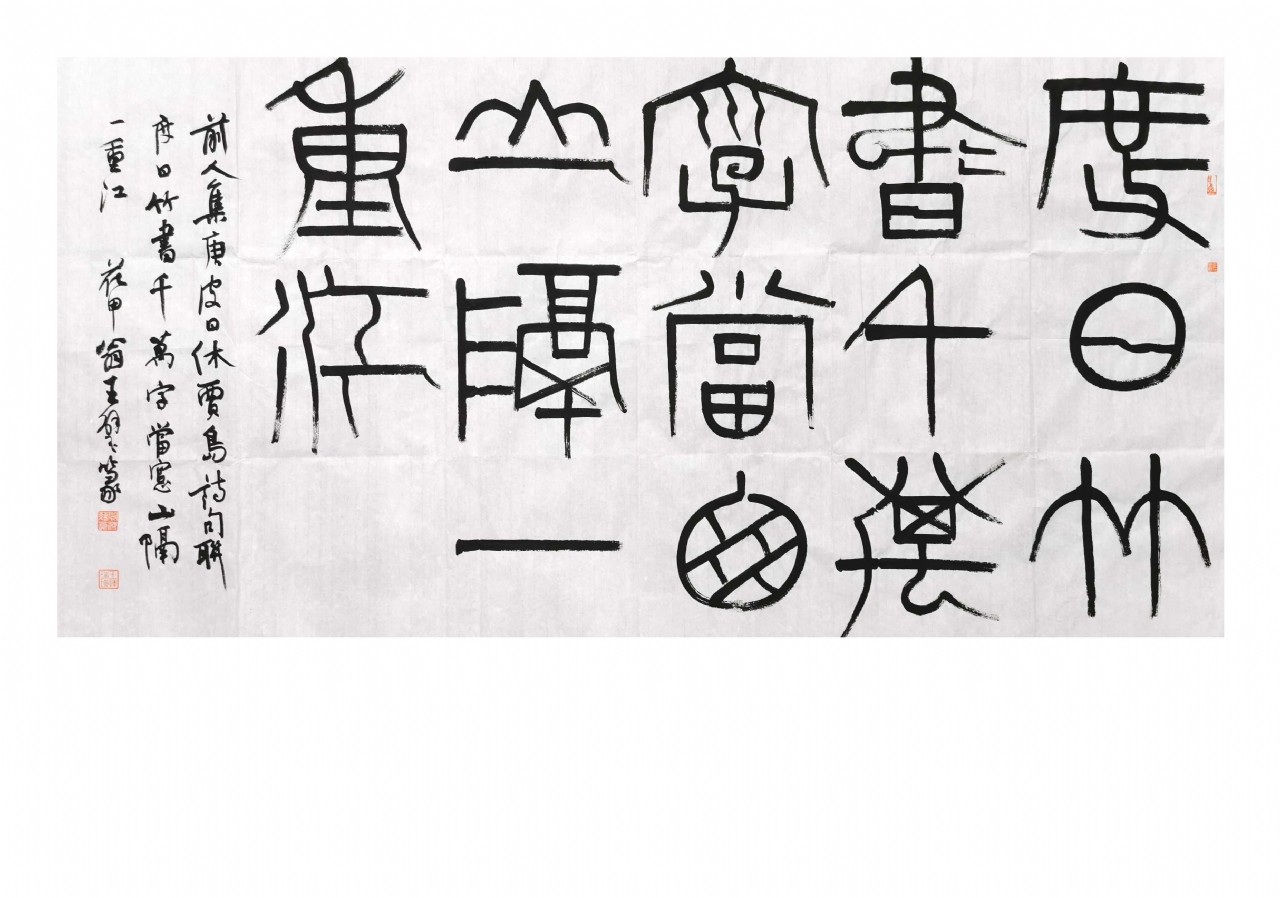 度日竹
書千萬
字當囪
山隔一
重江
前人集唐皮日休賈島詩句聯
度日竹書千萬字當窻山隔
一重江 花甲翁王篆